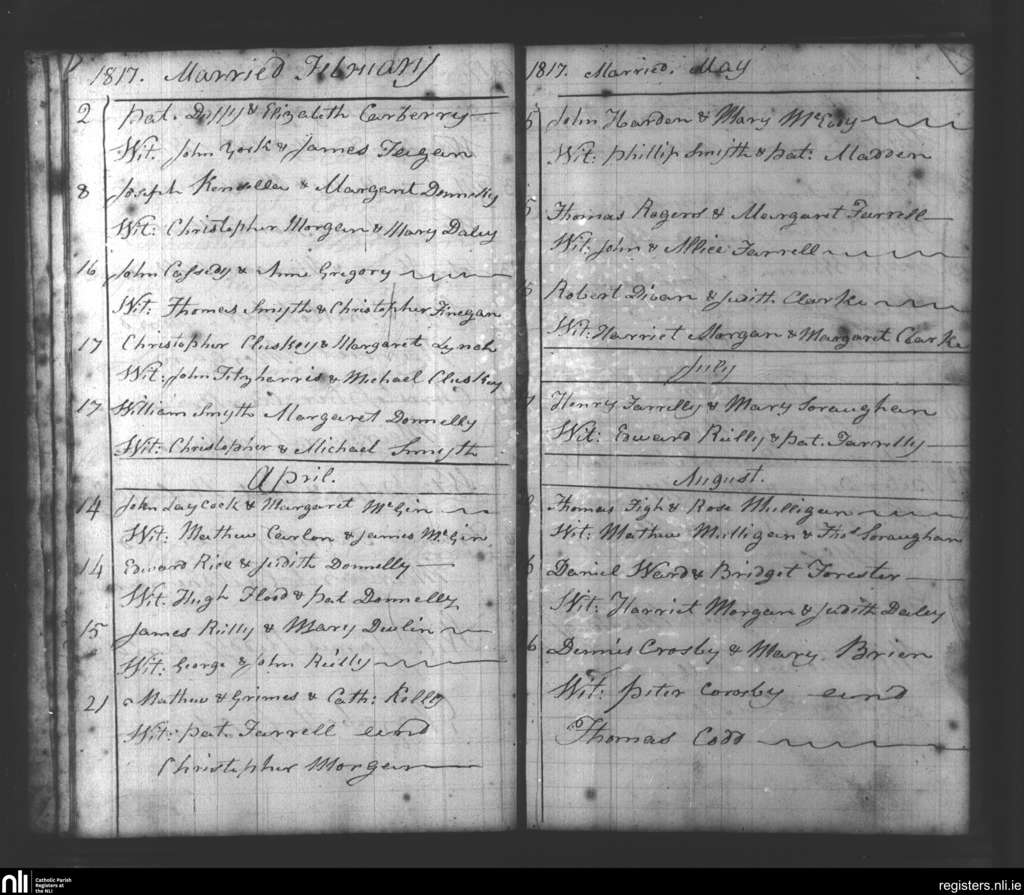 1817. Married February
2 Pat. Duffy & Elizabeth Carberry
Wit. John York & James Fagan
8 Joseph & Margaret Donnelly
Wit: Christopher Morgan & Mary Daley
16 John Cassedy & Anne Gregory
Wit: Thomas Smyth & Christopher Finegan
17 Christopher Cluskey & Margaret Lynch
Wit: John Fitzharris & Michael Cluskey
17 William Smyth Margaret Donnelly
Wit: Christopher & Michael Smyth
April.
14 John Laycock & Margaret McGin
Wit: Mathew Carlon & James McGin
14 Edward Rice & Judith Donnelly
Wit. Hugh Flood & Pat Donnelly
15 James Reilly & Mary Devlin
Wit: George & John Reilly
21 Mathew Grimes & Cath: Kelly
Wit: Pat. Farrell and
Christopher Morgan
1817. Married. May
5 John Harden & Mary
Wit: Phillip Smyth & Pat: Madden
5 Thomas Rogers & Margaret Farrell
Wit: John & Allice Farrell
Robert & Judith Clarke
Wit: Harriet Morgan & Margaret Clarke
July
Henry Farrelly & Mary Soraughan
Wit: Edward Reilly & Pat. Farrelly
August.
Thomas Figh & Rose Mulligan
Wit: Mathew Mulligan & Thos Soraughan
6 Daniel Ward & Bridget Forester
Wit: Harriet Morgan & Judith Daley
6 Dennis Crosby & Mary Brien
Wit: Peter Corosby and
Thomas Codd
nli Catholic Parish
Registers at
the NLI
registers.nli.ie